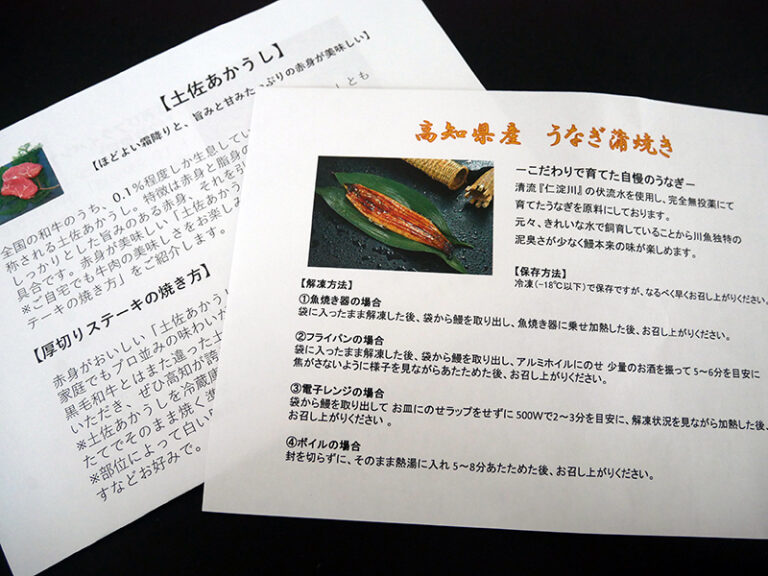 【土佐あかうし】
【ほどよい霜降りと、旨みと甘みたっぷりの赤身が美味しい】
全国の和牛のうち、0.1%程度しか生息してい
称される土佐あかうし。特徴は赤身と脂身の
しっかりとした旨みのある赤身、それを引
具合です。赤身が美味しい「土佐あかう
※ご自宅でも牛肉の美味しさをお楽しみ
テーキの焼き方」をご紹介します。
【厚切りステーキの焼き方】
赤身がおいしい「土佐あかうし
家庭でもプロ並みの味わいが
黒毛和牛とはまた違った土
いただき、ぜひ高知が誇
※土佐あかうしを冷蔵庫
たてでそのまま焼く
※部位によって白い
すなどお好みで。
高知県産 うなぎ蒲焼き
ーこだわりで育てた自慢のうなぎー
清流『仁淀川』の伏流水を使用し、完全無投薬にて
育てたうなぎを原料にしております。
元々、きれいな水で飼育していることから川魚独特の
泥臭さが少なく鰻本来の味が楽しめます。
【保存方法】
冷凍(-18℃以下)で保存ですが、なるべく早くお召し上がりください。
【解凍方法】
①魚焼き器の場合
袋に入ったまま解凍した後、袋から鰻を取り出し、魚焼き器に乗せ加熱した後、お召し上がりください。
②フライパンの場合
袋に入ったまま解凍した後、袋から鰻を取り出し、アルミホイルにのせ 少量のお酒を振って 5~6分を目安に
焦がさないように様子を見ながらあたためた後、お召し上がりください。
③電子レンジの場合
袋から鰻を取り出して お皿にのせラップをせずに 500Wで2~3分を目安に、解凍状況を見ながら加熱した後、
お召し上がりください 。
④ボイルの場合
封を切らずに、そのまま熱湯に入れ 5~8分あたためた後、お召し上がりください。